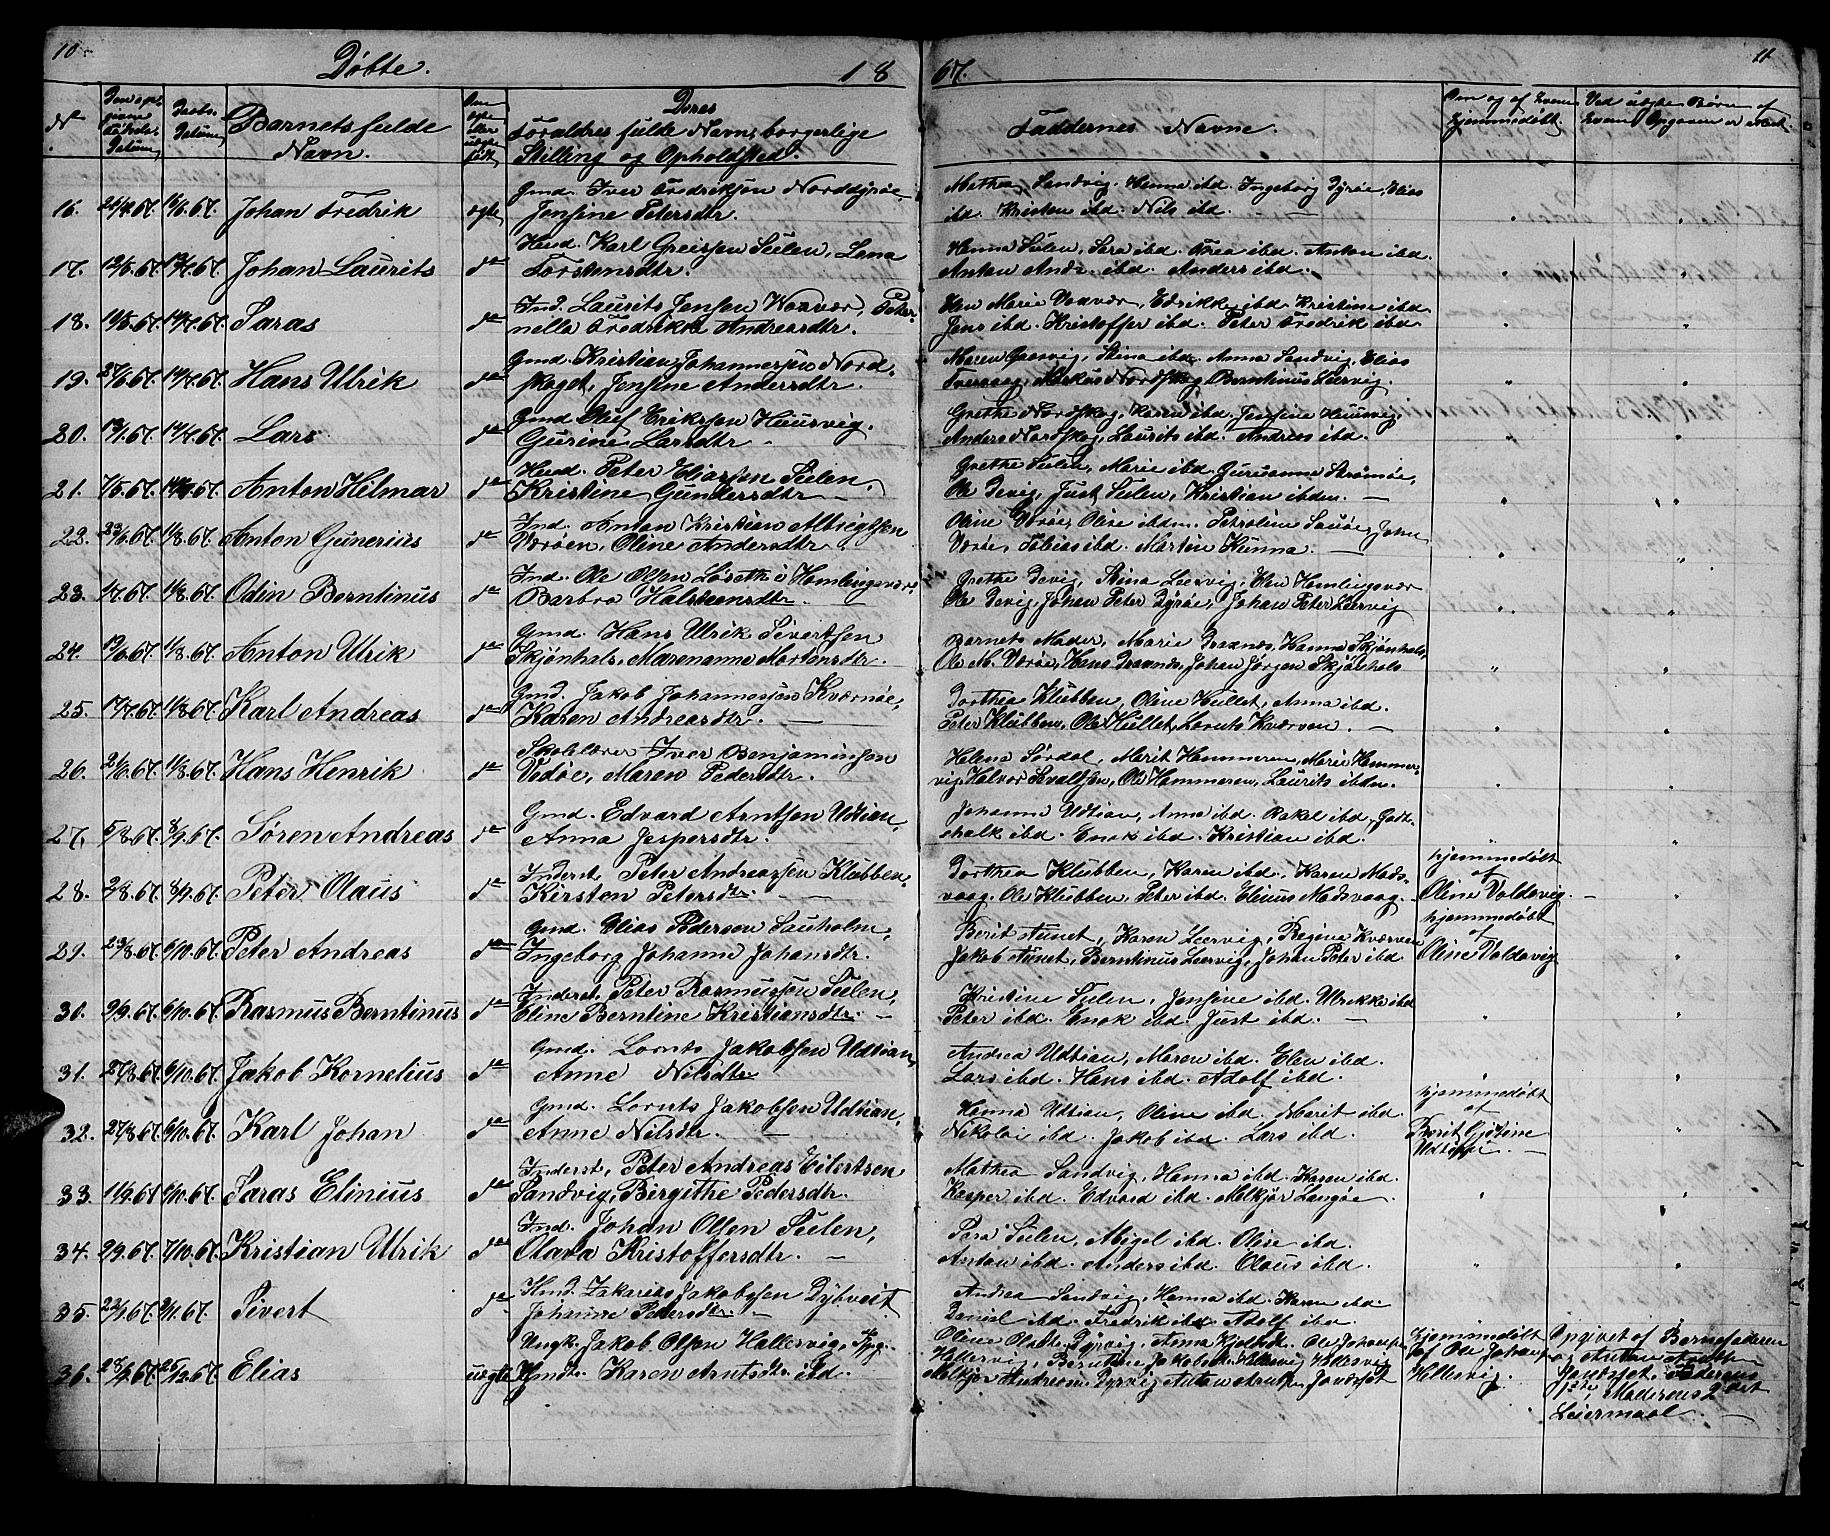 10.
Døbte.
18
67.
11
No.
Daabs-Datum
Barnets fulde Navn.
Deres Forældres fulde Navn, borgerlige Stilling og Opholdsted.
Faddernes Navne.
Om og af hvem hjemmedøbt
Ved uægte Børn af hvem Opgaven er
16. 16/6.67. Johan Fredrik ægte
Gmd. Iver Fredriksen Norddyrøe
Jensine Petersdtr.
Mathea Sandvig. Hanna ibd. Ingeborg Dyrøe, Elias
ibd. Kristen ibd. Nils ibd.
17. 12/5.67. Johan Laurits do
Karl Greissen Sulen, Lena
Torstensdtr.
Hanna Sulen, Sara ibd. Thea ibd. Anton ibd.
Anton Ands. ibd. Anders ibd.
18. 14/7.67. Saras do
Ind. Laurits Jensen Vaavær, Peter-
nella Fredrikke Andreasdtr.
Elen Marie Vaavær, Edrikke ibd. Kristine ibd
Jens ibd. Kristoffer ibd. Peter Fredrik ibd
19. 27/6.67. 14/7.67. Hans Ulrik do
Gmd. Kristian Johannessen Nord-
skaget, Jensine Andersdtr.
Maren Gaasvig, Stina ibd. Anna Sandvig, Elias
Tvervaag, Markus Nordskag Berntinus Leervig.
20. 14/7.67. Lars do
Gmd Olef Eriksen Huusvig.
Gurine Larsdtr
Grethe Nordskog, Karen ibd. Jensine Huusvig,
Anders Nordskog, Laurits ibd. Andreas ibd.
21. 7/5.67. 14/7.67. Anton Hilmar do
Peter Eliassen Sulen,
Kristine Gundersdtr
Grethe Sulen, Marie ibd. Gurianna Strømøe,
Ole Devig, Just Sulen, Kristian ibden.
22. 23/6.67. 11/8.67. Anton Gunerius do
Ind. Anton Kristian Albrigtsen
Værøen, Oline Andersdtr
Oline Værøe, Olise ibdm. Petroline Sauøe, John
Værøe, Tobias ibd. Martin Kunna.
23. 1/7.67. 11/8.67. Odin Berntinus do
Ind. Ole Olsen Løseth i Hemlingsvær
Barbro Halstensdtr.
Grethe Devig, Stina Leervig, Elen Hemlingsvær
Ole Devig, Johan Peter Dyrøe, Johan Peter Leervig
24. 13/6.67. 11/8.67. Anton Ulrik do
Gmd. Hans Ulrik Sivertsen
Skjønhals, Marenanna Mortensdtr.
Barnets Moder, Marie Draanes, Hanna Skjønhals,
Ole M. Værøe, Hans Draanes, Johan Jørgen Skjønhals
25. 17/7.67. 11/8.67. Karl Andreas do
Gmd. Jakob Johannessen Kværnøe,
Karen Andreasdtr.
Dorthea Klubben, Oline Hullet, Anna ibd.
Peter Klubben, Ole Hullet, Lornts Kværven.
26. 21/6.67. 11/8.67. Hans Henrik do
Skolelærer Iver Benjaminsen
Vedøe, Maren Pedersdtr.
Helena Sørdal, Marit Hammeren, Marie Hammer-
vig, Halvor Sevaldsen, Ole Hammeren, Laurits ibden.
27. 5/8.67. 8/9.67. Søren Andreas do
Gmd. Edvard Arntsen Udtian,
Anna Jespersdtr.
Johanna Udtian, Anna ibd. Rakel ibd., Godt-
skalk ibd. Enok ibd. Kristian ibd.
28. 2/8.67. 8/9.67. Peter Olaus do
Inderst. Peter Andreassen Klubben,
Kirsten Petersdtr.
Dorthea Klubben, Karen ibd., Karen Mads-
vaag. Ole Klubben, Peter ibd. Elinus Madsvaag.
hjemmedøbt af Oline Valdsvig.
29. 23/8.67. 6/10.67. Peter Andreas do
Gmd. Elias Pedersen Sauholm,
Ingeborg Johanna Johansdtr.
Berit Aunet, Karen Leervig, Regine Kværven
Jakob Aunet, Berntinus Leervig, Johan Peter ibd
hjemmedøbt af Oline Valdsvig
30. 2/9.67. 6/10.67. Rasmus Berntinus do
Inderst. Peter Rasmussen Sulen,
Eline Berntine Kristiansdtr.
Kristine Sulen, Jensine ibd. Ulrikke ibd
Peter ibd. Enok ibd. Just ibd.
31. 27/8.67. 6/10.67. Jakob Kornelius do
Gmd. Lornts Jakobsen Udtian,
Anne Nilsdtr
Andrea Udtian, Maren ibd. Elen ibd.
Lars ibd. Hans ibd. Adolf ibd.
32. 27/8.67. 6/10.67. Karl Johan do
Gmd. Lornts Jakobsen Udtian,
Anne Nilsdtr.
Hanna Udtian, Oline ibd. Marit ibd.
Nikolai ibd. Jakob ibd. Lars ibd.
hjemmedøbt af Berit
33. 11/9.67 6/10.67. Saras Elinius do
Inderst. Peter Andreas Eilertsen
Sandvig, Birgithe Pedersdtr.
Mathea Sandvig, Hanna ibd. Karen ibd.
Kasper ibd. Edvard ibd. Melkjør Langøe
34. 2/9.67. 7/10.67. Kristian Ulrik do
Ind. Johan Olsen Sulen,
Olava Kristoffersdtr.
Sara Sulen, Migel ibd. Olise ibd.
Anton ibd. Anders ibd. Olaus ibd.
35. Sivert do
Hmd. Zakarias Jakobsen Dybveit
Johanne Pedersdtr.
Andrea Sandvig, Hanna ibd. Karen ibd.
Daniel ibd. Fredrik ibd. Adolf ibd
36. Elias uægte
Ungk. Jakob Olsen Hallersvig, Pg.
Karen Arntsdtr ibd.
Oline Olsdtr Dyrvig, Anna
Melkjør Andreasen Dyrvig Anton Arntsen
Hjemmedøbt af Ole Johansen Hellesvig.
Opgivet af Barnefaderen og Anton Arntsen
Faderens 1ste Moderens 2det Leiermaal.